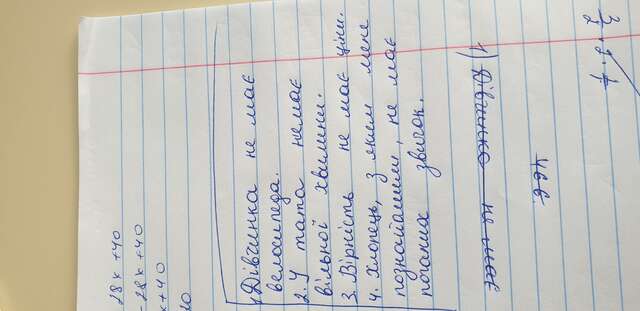 28x+40
-28x+40
x+40
1. Дівчинка не має
велосипеда.
2. У тата немає
вільної хвилини.
3. Вірність не має ціни.
4. Хлопець, з яким мене
познайомили, не має
поганих звичок.
1) Дівчинка не має